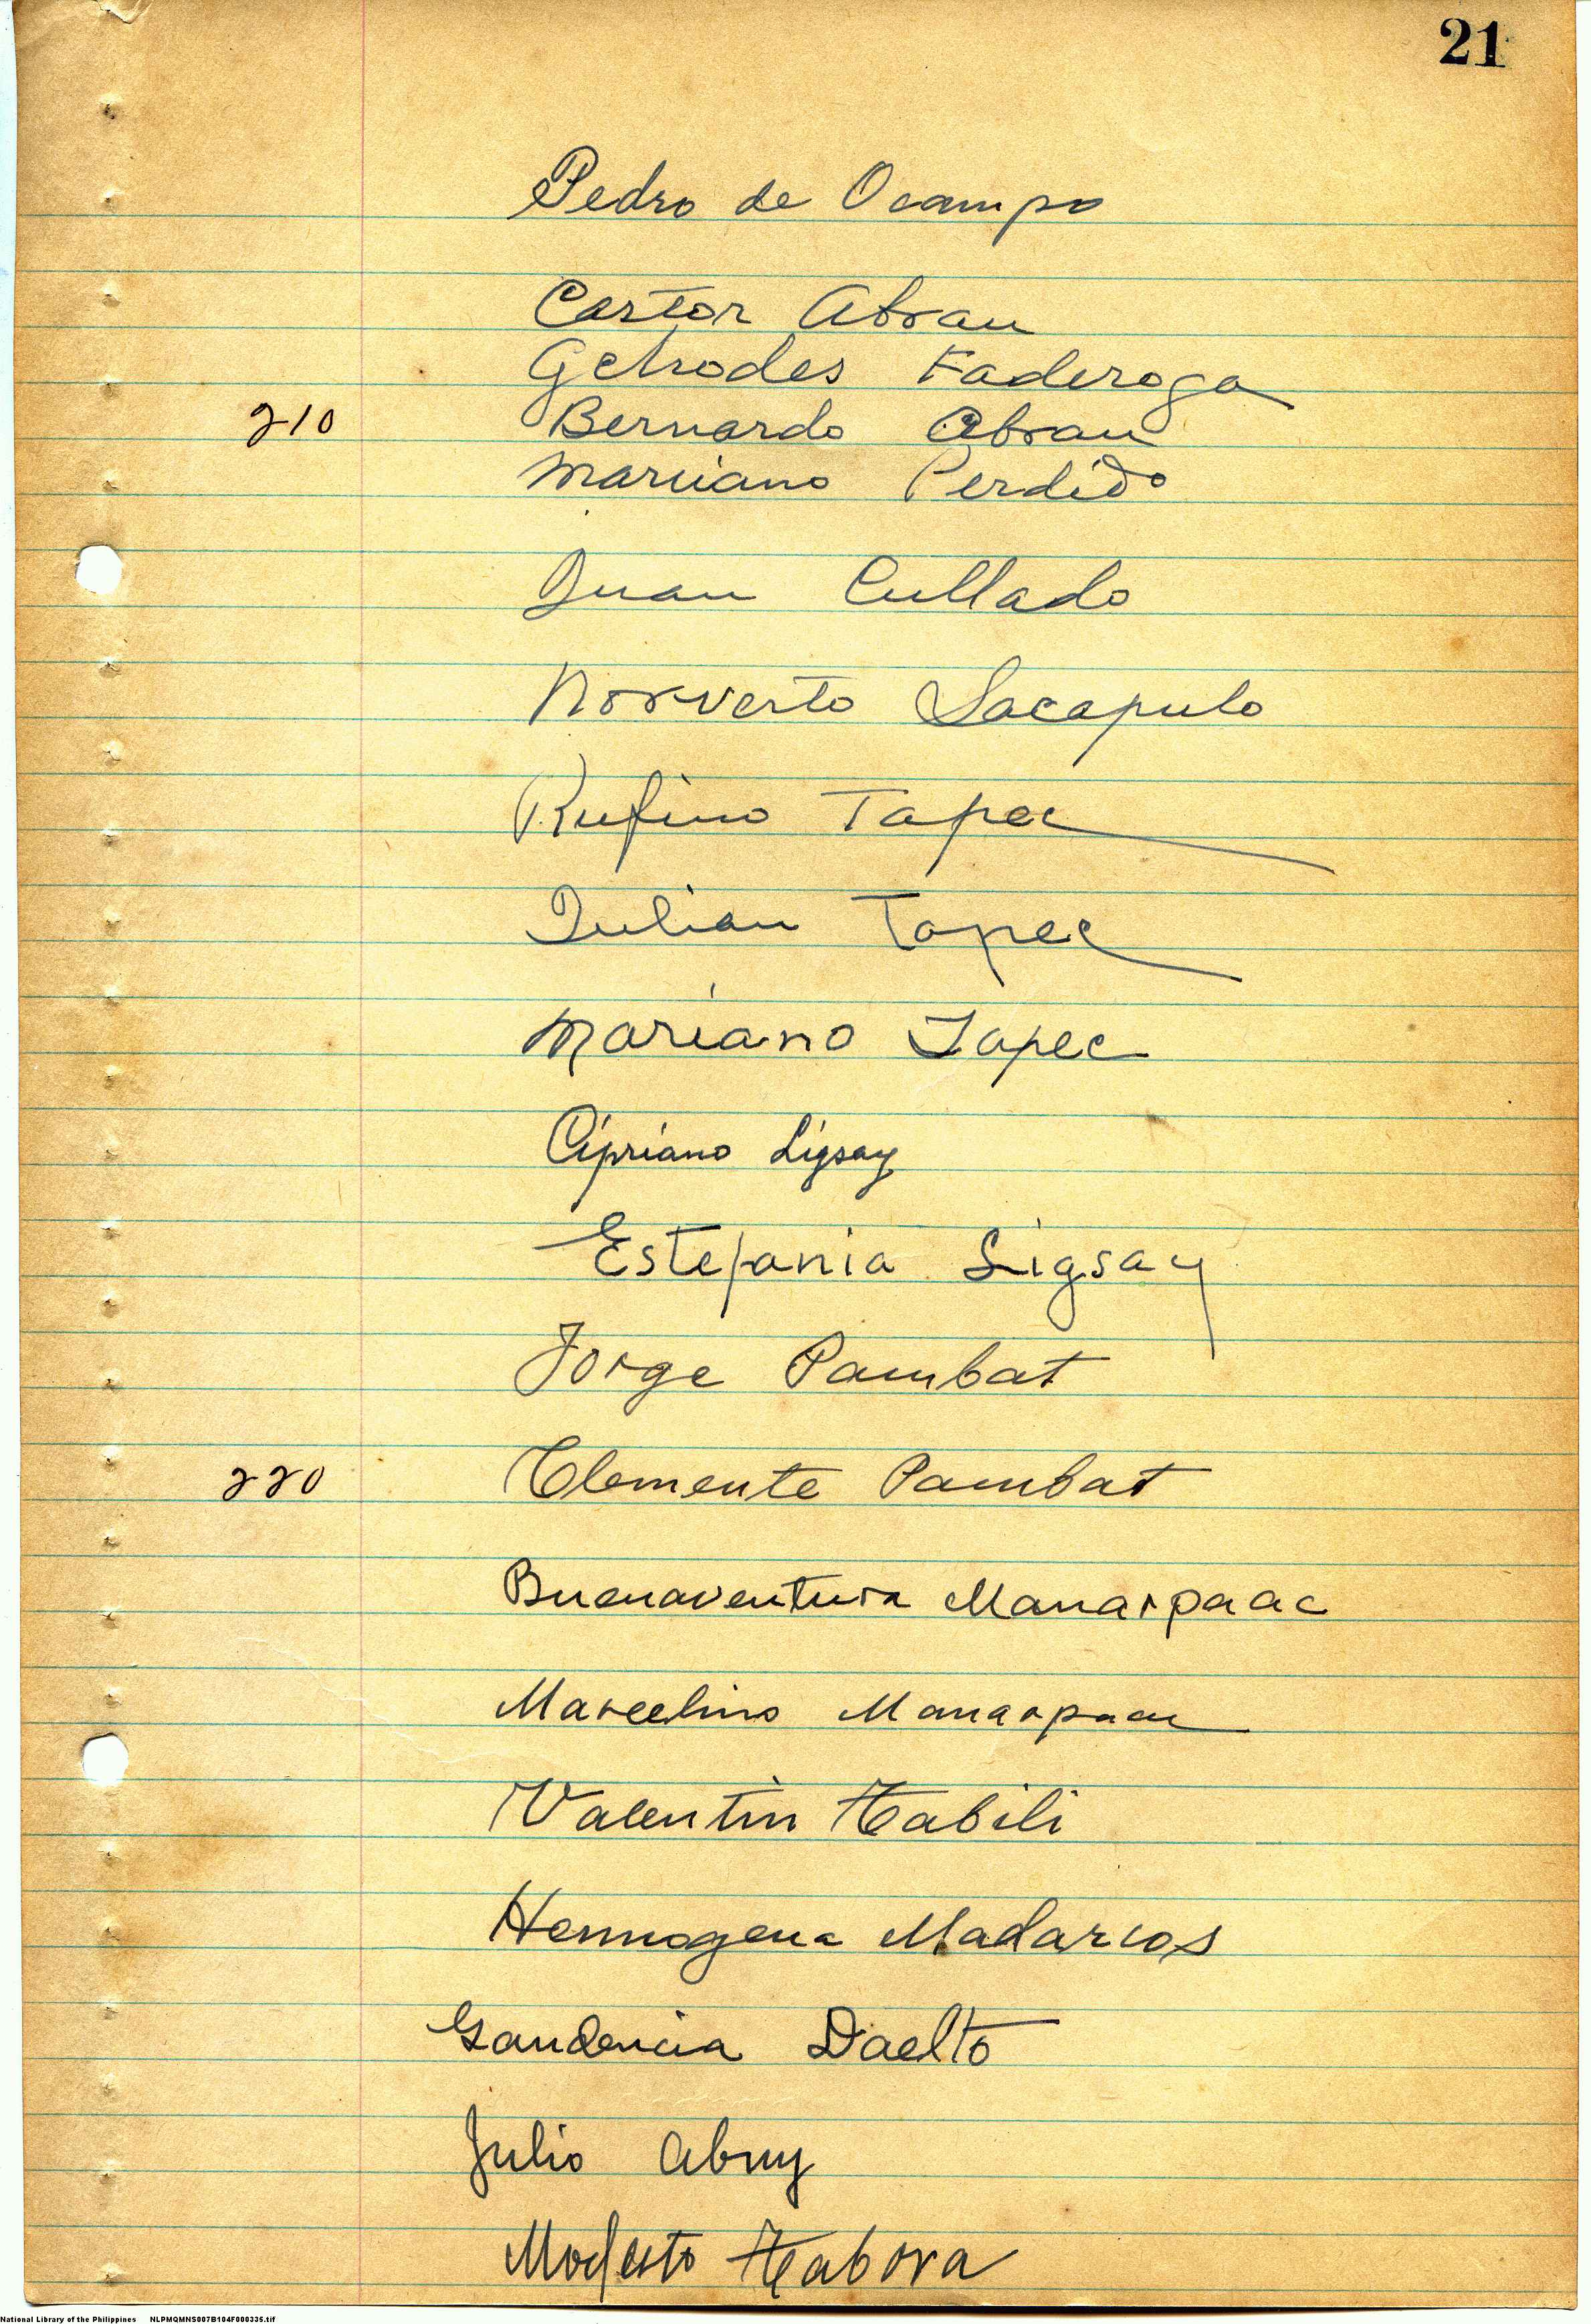 21
Pedro de Ocampo
Castor Abrau
Getrodes Faderoga
210 Bernardo Abrau
Marciano Perdido
Juan Cullado
Norverto Sacapulo
Rufino Tapec
Julian Tapec
Mariano Tapec
Cipriano Ligsay
Estefania Ligsay
Jorge Pambat
220 Clemente Pambat
Buenaventura Manarpaac
Marcelino Manarpaac
Valentin Tabili
Hermogena Madarcos
Gaudencia Daelto
Julio Abuy
Modesto Tabora
National Library of the Philippines NLPMQMNS007B104F000335.tif